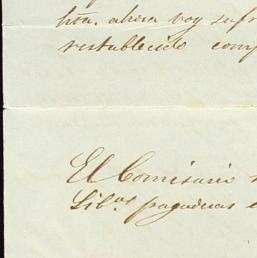 hta. ahora voy sufr
restablecido comp
El Comisario
Lib.os pagaduras e